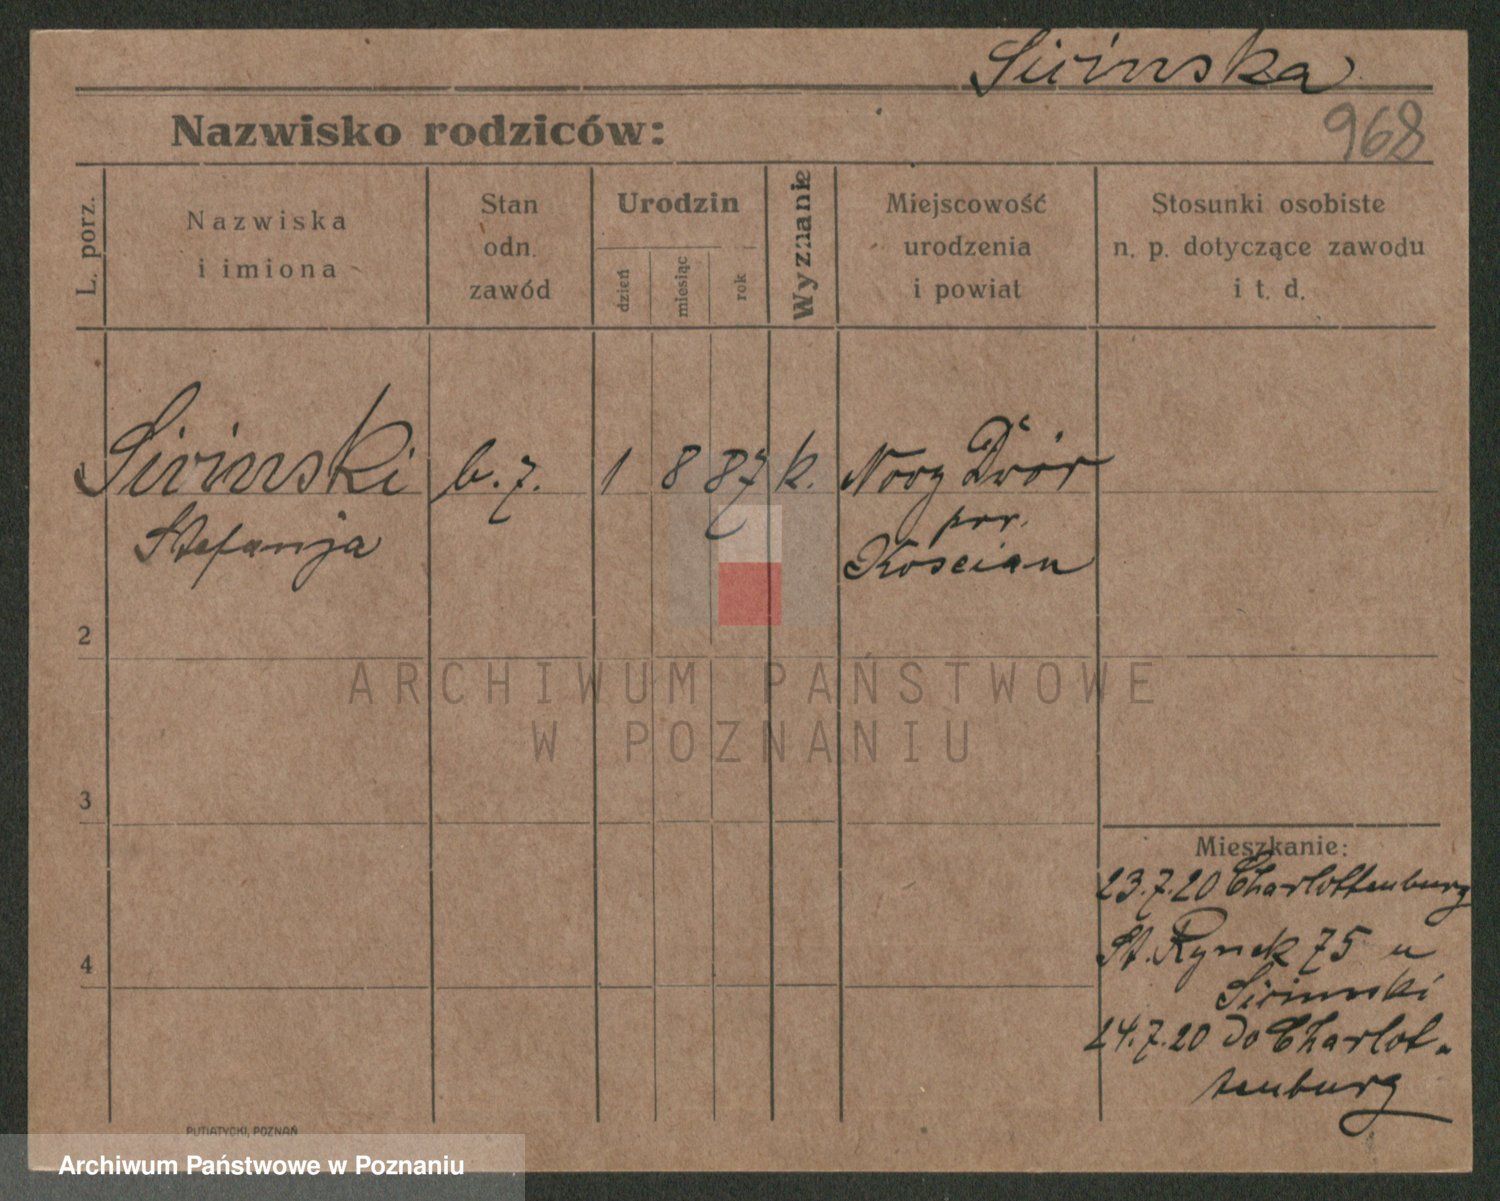 Sivinska
Nazwisko rodziców:
968
L. porz.
Nazwiska
i imiona
Stan
odn.
zawód
Urodzin
dzień
miesiąc
rok
Wyznanie
Miejscowość
urodzenia
i powiat
Stosunki osobiste
n. p. dotyczące zawodu
i t. d.
1 Sivinski b. z. 1 8 87 k. Novy Dvór
Stefanja
pov.
Koscian
2
3
4
Mieszkanie:
23.7.20 Charlottenburg
St. Rynek 75 u
Sivinski
24.7.20 do Charlot-
tenburg
PUTIATYCKI, POZNAŃ
ARCHIWUM PAŃSTWOWE
W POZNANIU
Archiwum Państwowe w Poznaniu